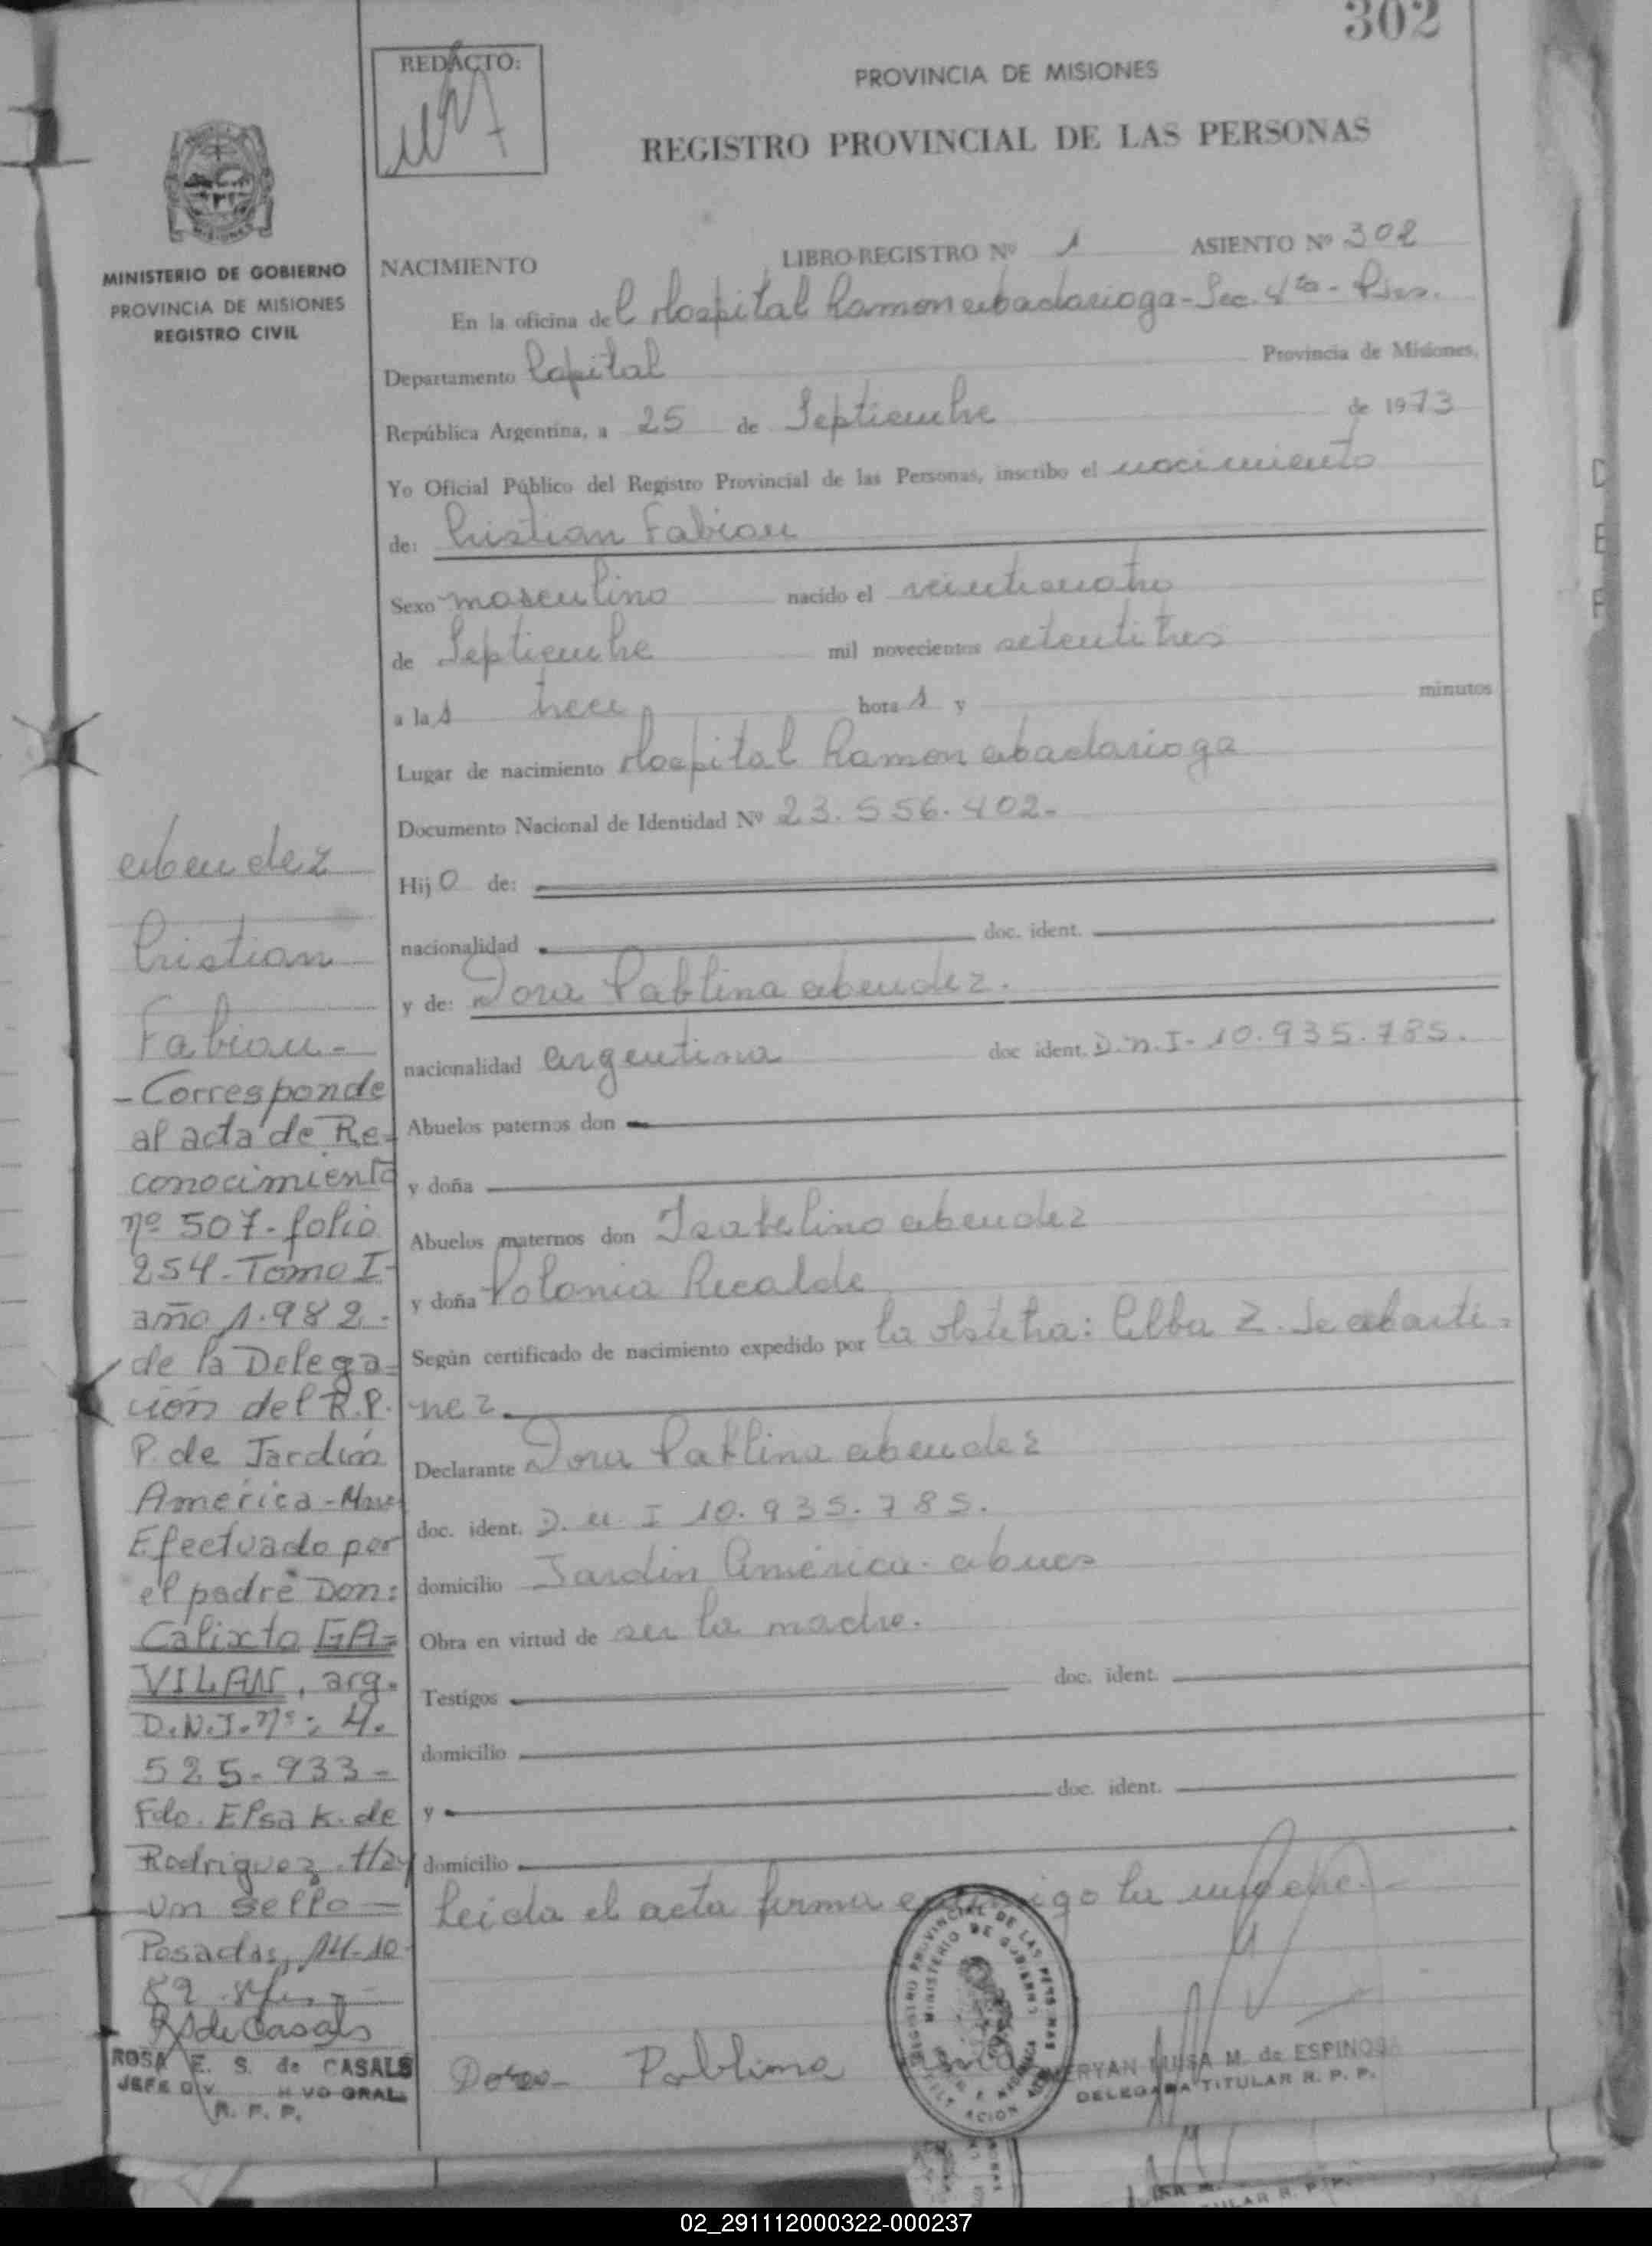 302
REDACTO:
PROVINCIA DE MISIONES
REGISTRO PROVINCIAL DE LAS PERSONAS
MINISTERIO DE GOBIERNO
PROVINCIA DE MISIONES
REGISTRO CIVIL
NACIMIENTO LIBRO-REGISTRO Nº 1 ASIENTO Nº 302
En la oficina del Hospital Ramon Madariaga - Sec. 4ta - Pdas.
Departamento Capital Provincia de Misiones,
República Argentina, a 25 de Septiembre de 1973
Yo Oficial Público del Registro Provincial de las Personas, inscribo el nacimiento
de: Cristian Fabian
Sexo masculino nacido el veinticuatro
de Septiembre mil novecientos setentitres
a las trece horas y minutos
Lugar de nacimiento Hospital Ramon Madariaga
Documento Nacional de Identidad Nº 23.556.402-
Hijo de:
nacionalidad doc. ident.
y de: Dora Pablina Mendez.
nacionalidad argentina doc ident. D.N.I- 10.935.785.
Abuelos paternos don
y doña
Abuelos maternos don Isabelino Mendez
y doña Polonia Recalde
Según certificado de nacimiento expedido por la obstetra: Elba Z. de Marti-
nez.
Declarante Dora Pablina Mendez
doc. ident. D.N.I 10.935.785.
domicilio Jardin América - Mnes
Obra en virtud de ser la madre.
Testigos doc. ident.
domicilio
y doc. ident.
domicilio
Leida el acta firma conmigo la madre.-
Dora Pablina
MERYAN LUISA M. de ESPINOSA
DELEGADA TITULAR R. P. P.
Mendez
Cristian
Fabian-
- Corresponde
al acta de Re-
conocimiento
nº 507-folio
254-Tomo I-
año 1.982-
de la Delega-
ción del R.P.
P. de Jardín
América-Mnes
Efectuado por
el padre Don:
Calixto GA=
VILAN, arg.
D.N.I. nº: 4.
525-933-
Fdo. Elsa K. de
Rodriguez. Hay
un sello-
Posadas, 14-10-
82
R S de Casals
ROSA E. S. de CASALS
JEFE DIV. GRAL.
R. P. P.
REGISTRO PROVINCIAL DE LAS PERSONAS
MINISTERIO DE GOBIERNO
02_291112000322-000237